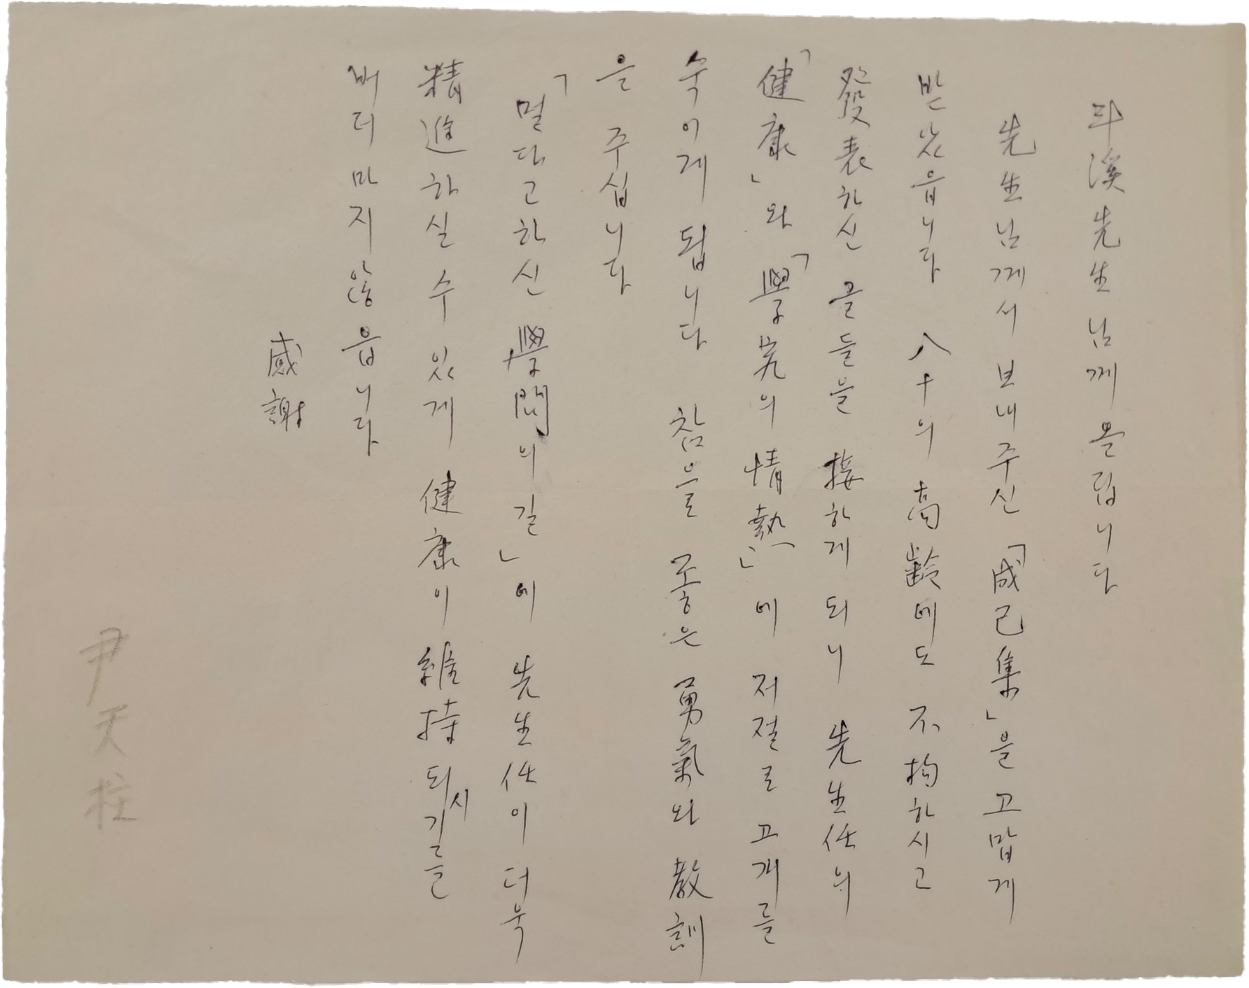 斗溪先生님께 올립니다
先生님께서 보내주신 「成己集」을 고맙게
받았읍니다 八十의 高齡에도 不拘하시고
發表하신 글들을 接하게 되니 先生任의
「健康」와 「學究의 情熱」에 저절로 고개를
숙이게 됩니다 참으로 좋은 勇氣와 敎訓
을 주십니다
「멀다고하신 學問의 길」에 先生任이 더욱
精進하실 수 있게 健康이 維持되시길를
비러마지않읍니다
感謝
尹天柱